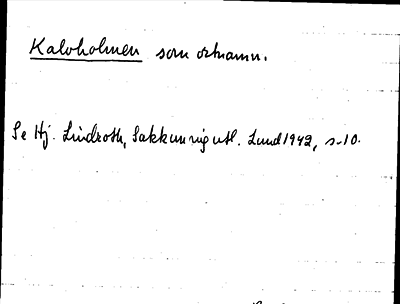 Kalvholmen som ortnamn.
Se Hj. Lindroth, Sakkunnigutl. Lund 1942, s. 10.